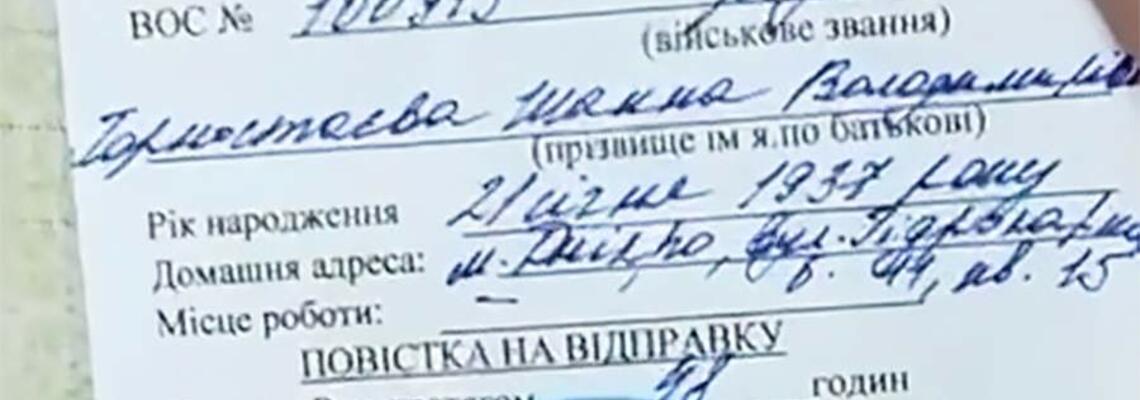 ВОС № 100915
(військове звання)
Горностаєва Жанна Володимирівн
(прізвище ім я.по батькові)
Рік народження 21 січня 1937 року
Домашня адреса: м. Дніпро, вул.
б. 44, кв. 15
Місце роботи: –
ПОВІСТКА НА ВІДПРАВКУ
48 годин